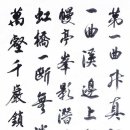 第一曲升真
一曲溪邊上
幔亭峯影蘸
虹橋一斷無
萬壑千巖鎖